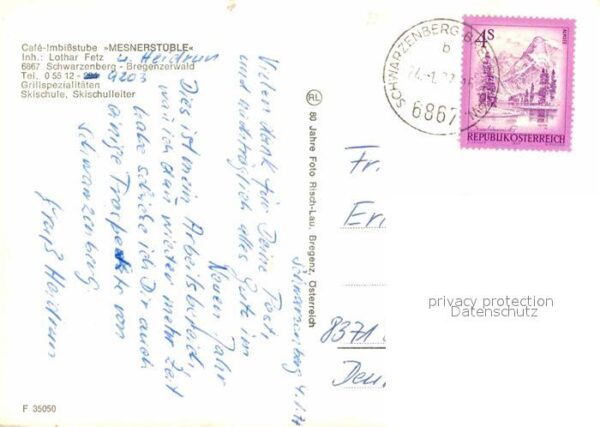 Café-Imbißstube »MESNERSTÜBLE«
Inh.: Lothar Fetz u Heidrun
6867 Schwarzenberg - Bregenzerwald
Tel. 0 55 12 - 4203
Grillspezialitäten
Skischule, Skischulleiter
Schwarzenberg 4.1.77
Vielen Dank für Deine Post,
und nachträglich alles Gute im
Neuen Jahr
Dies ist mein Arbeitsbereich,
wenn ich dann wieder mehr Zeit
habe schicke ich Dir auch
einige Prospekte von
Schwarzenberg.
Gruß Heidrun
F 35050
RL 80 Jahre Foto Risch-Lau, Bregenz, Österreich
SCHWARZENBERG
b
6867
4S
REPUBLIK ÖSTERREICH
Fr.
Er
8371
Deu
privacy protection
Datenschutz